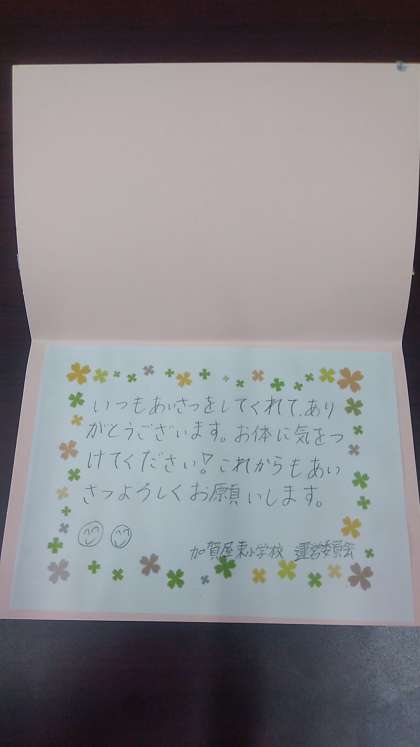 いつもあいさつをしてくれて、あり
がとうございます。お体に気をつ
けてください!これからもあい
さつよろしくお願いします。
加賀屋東小学校 運営委員会